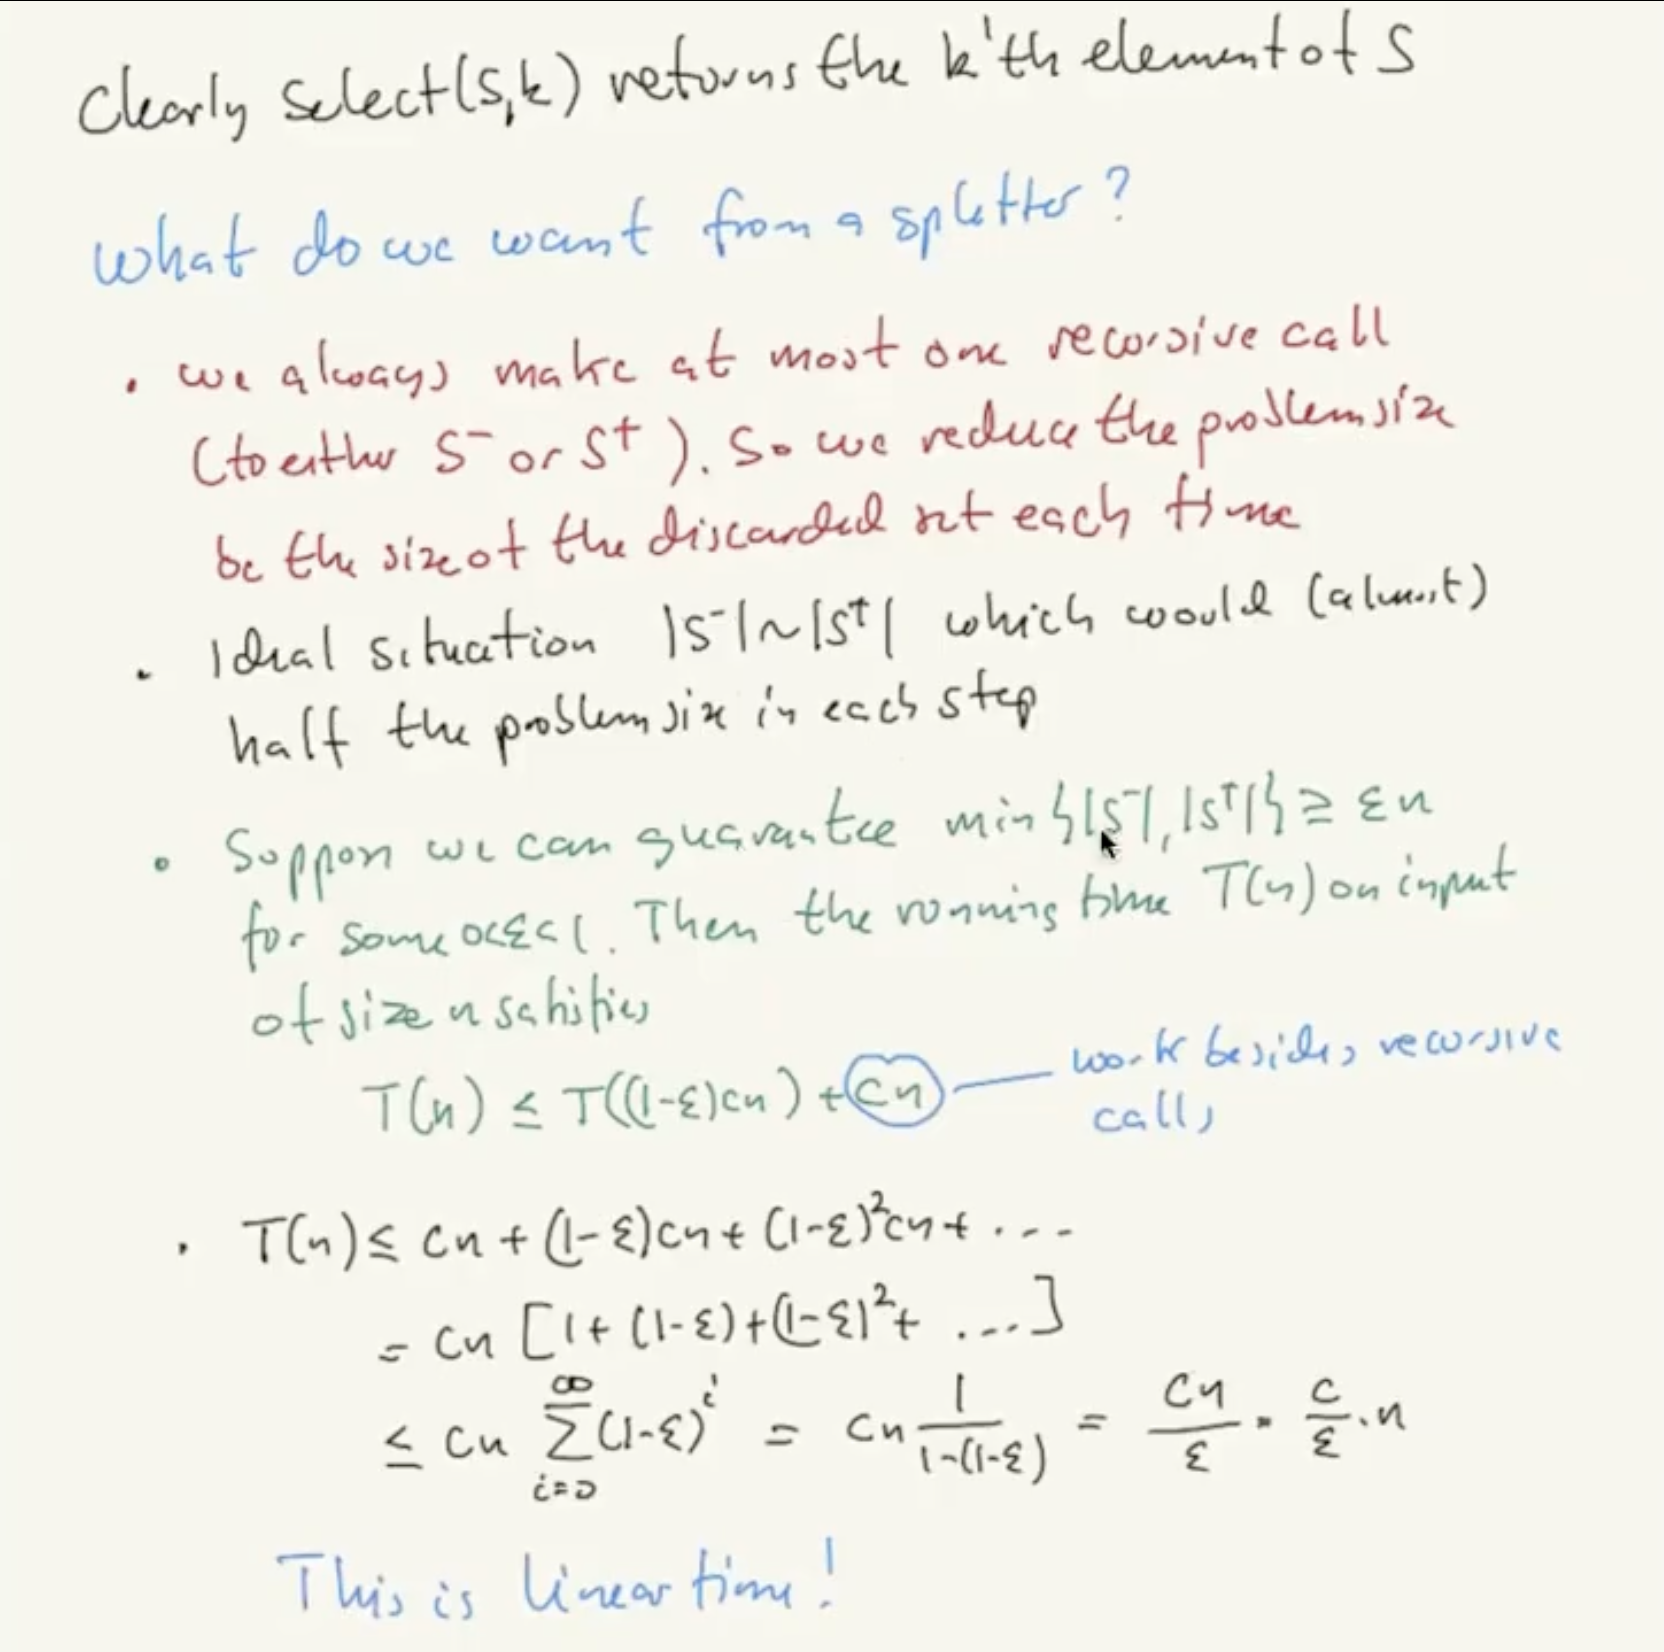 Clearly Select(S,k) returns the k'th element of S
What do we want from a splitter?
• we always make at most one recursive call
(to either S⁻ or S⁺). So we reduce the problem size
be the size of the discarded set each time
• Ideal situation |S⁻|~|S⁺| which would (almost)
half the problem size in each step
• Suppose we can guarantee min{|S⁻|,|S⁺|} ≥ εn
for some 0<ε<1. Then the running time T(n) on input
of size n satisfies
T(n) ≤ T((1-ε)cn) + cn — work besides recursive
calls
• T(n) ≤ cn + (1-ε)cn + (1-ε)²cn + ...
= cn [1 + (1-ε) + (1-ε)² + ...]
≤ cn ∑_{i=0}^{∞} (1-ε)^i = cn 1/(1-(1-ε)) = cn/ε = c/ε · n
This is linear time!